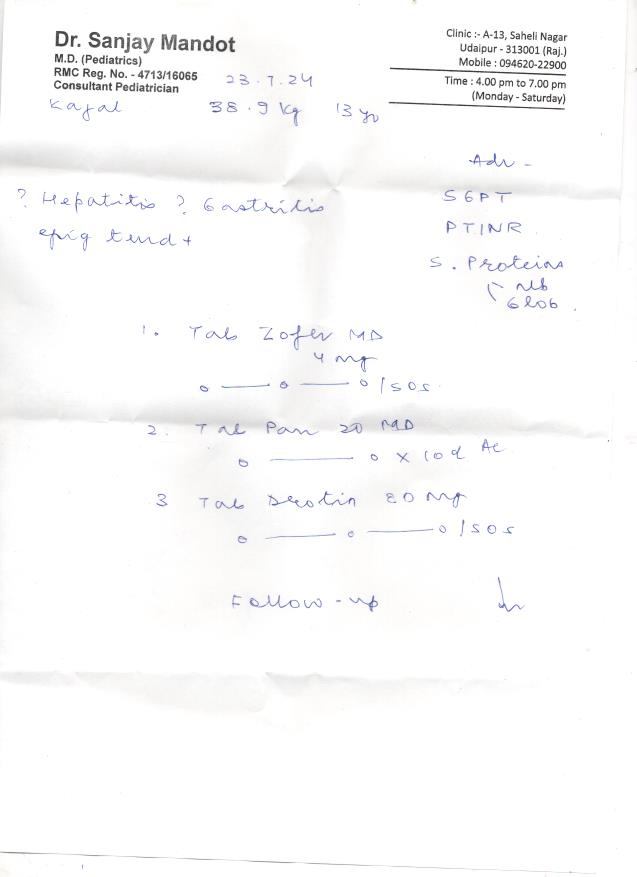 Dr. Sanjay Mandot
M.D. (Pediatrics)
RMC Reg. No. - 4713/16065
Consultant Pediatrician
Clinic :- A-13, Saheli Nagar
Udaipur - 313001 (Raj.)
Mobile : 094620-22900
Time : 4.00 pm to 7.00 pm
(Monday - Saturday)
23.7.24
Kajal 38.9 kg 13 yr
Adv -
SGPT
PTINR
S. Proteins
Alb
Glob.
? Hepatitis ? Gastritis
epig tend +
1. Tab Zofer MD
4 mg
o — o — o / sos
2. Tab Pan 20 MD
o — o x 10d AC
3 Tab Drotin 80 mg
o — o — o / sos
Follow-up